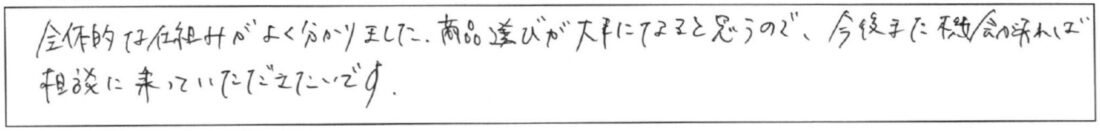 全体的な仕組みがよく分かりました。商品選びが大事になると思うので、今後また機会があれば
相談に乗っていただきたいです。